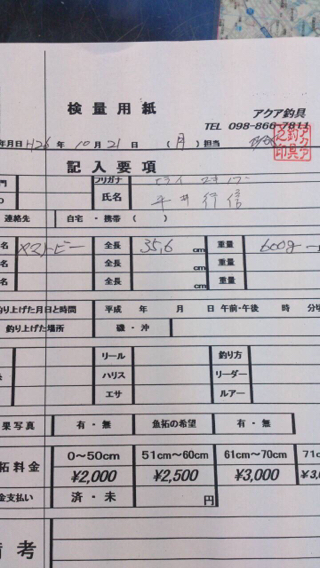 検量用紙
アクア釣具
TEL 098-866-7811
年月日 H26 年 10月 21日 (月) 担当
記入要項
フリガナ
氏名 平井行信
連絡先 自宅・携帯 ( )
名 全長 35,6 cm 重量 600g
名 全長 cm 重量
名 全長 cm 重量
釣り上げた月日と時間 平成 年 月 日 午前・午後 時 分
釣り上げた場所 磯・沖
リール 釣り方
ハリス リーダー
エサ ルアー
果写真 有・無 魚拓の希望 有・無
0~50cm 51cm~60cm 61cm~70cm 71c
拓料金 ¥2,000 ¥2,500 ¥3,000
金支払い 済・未 円
備考